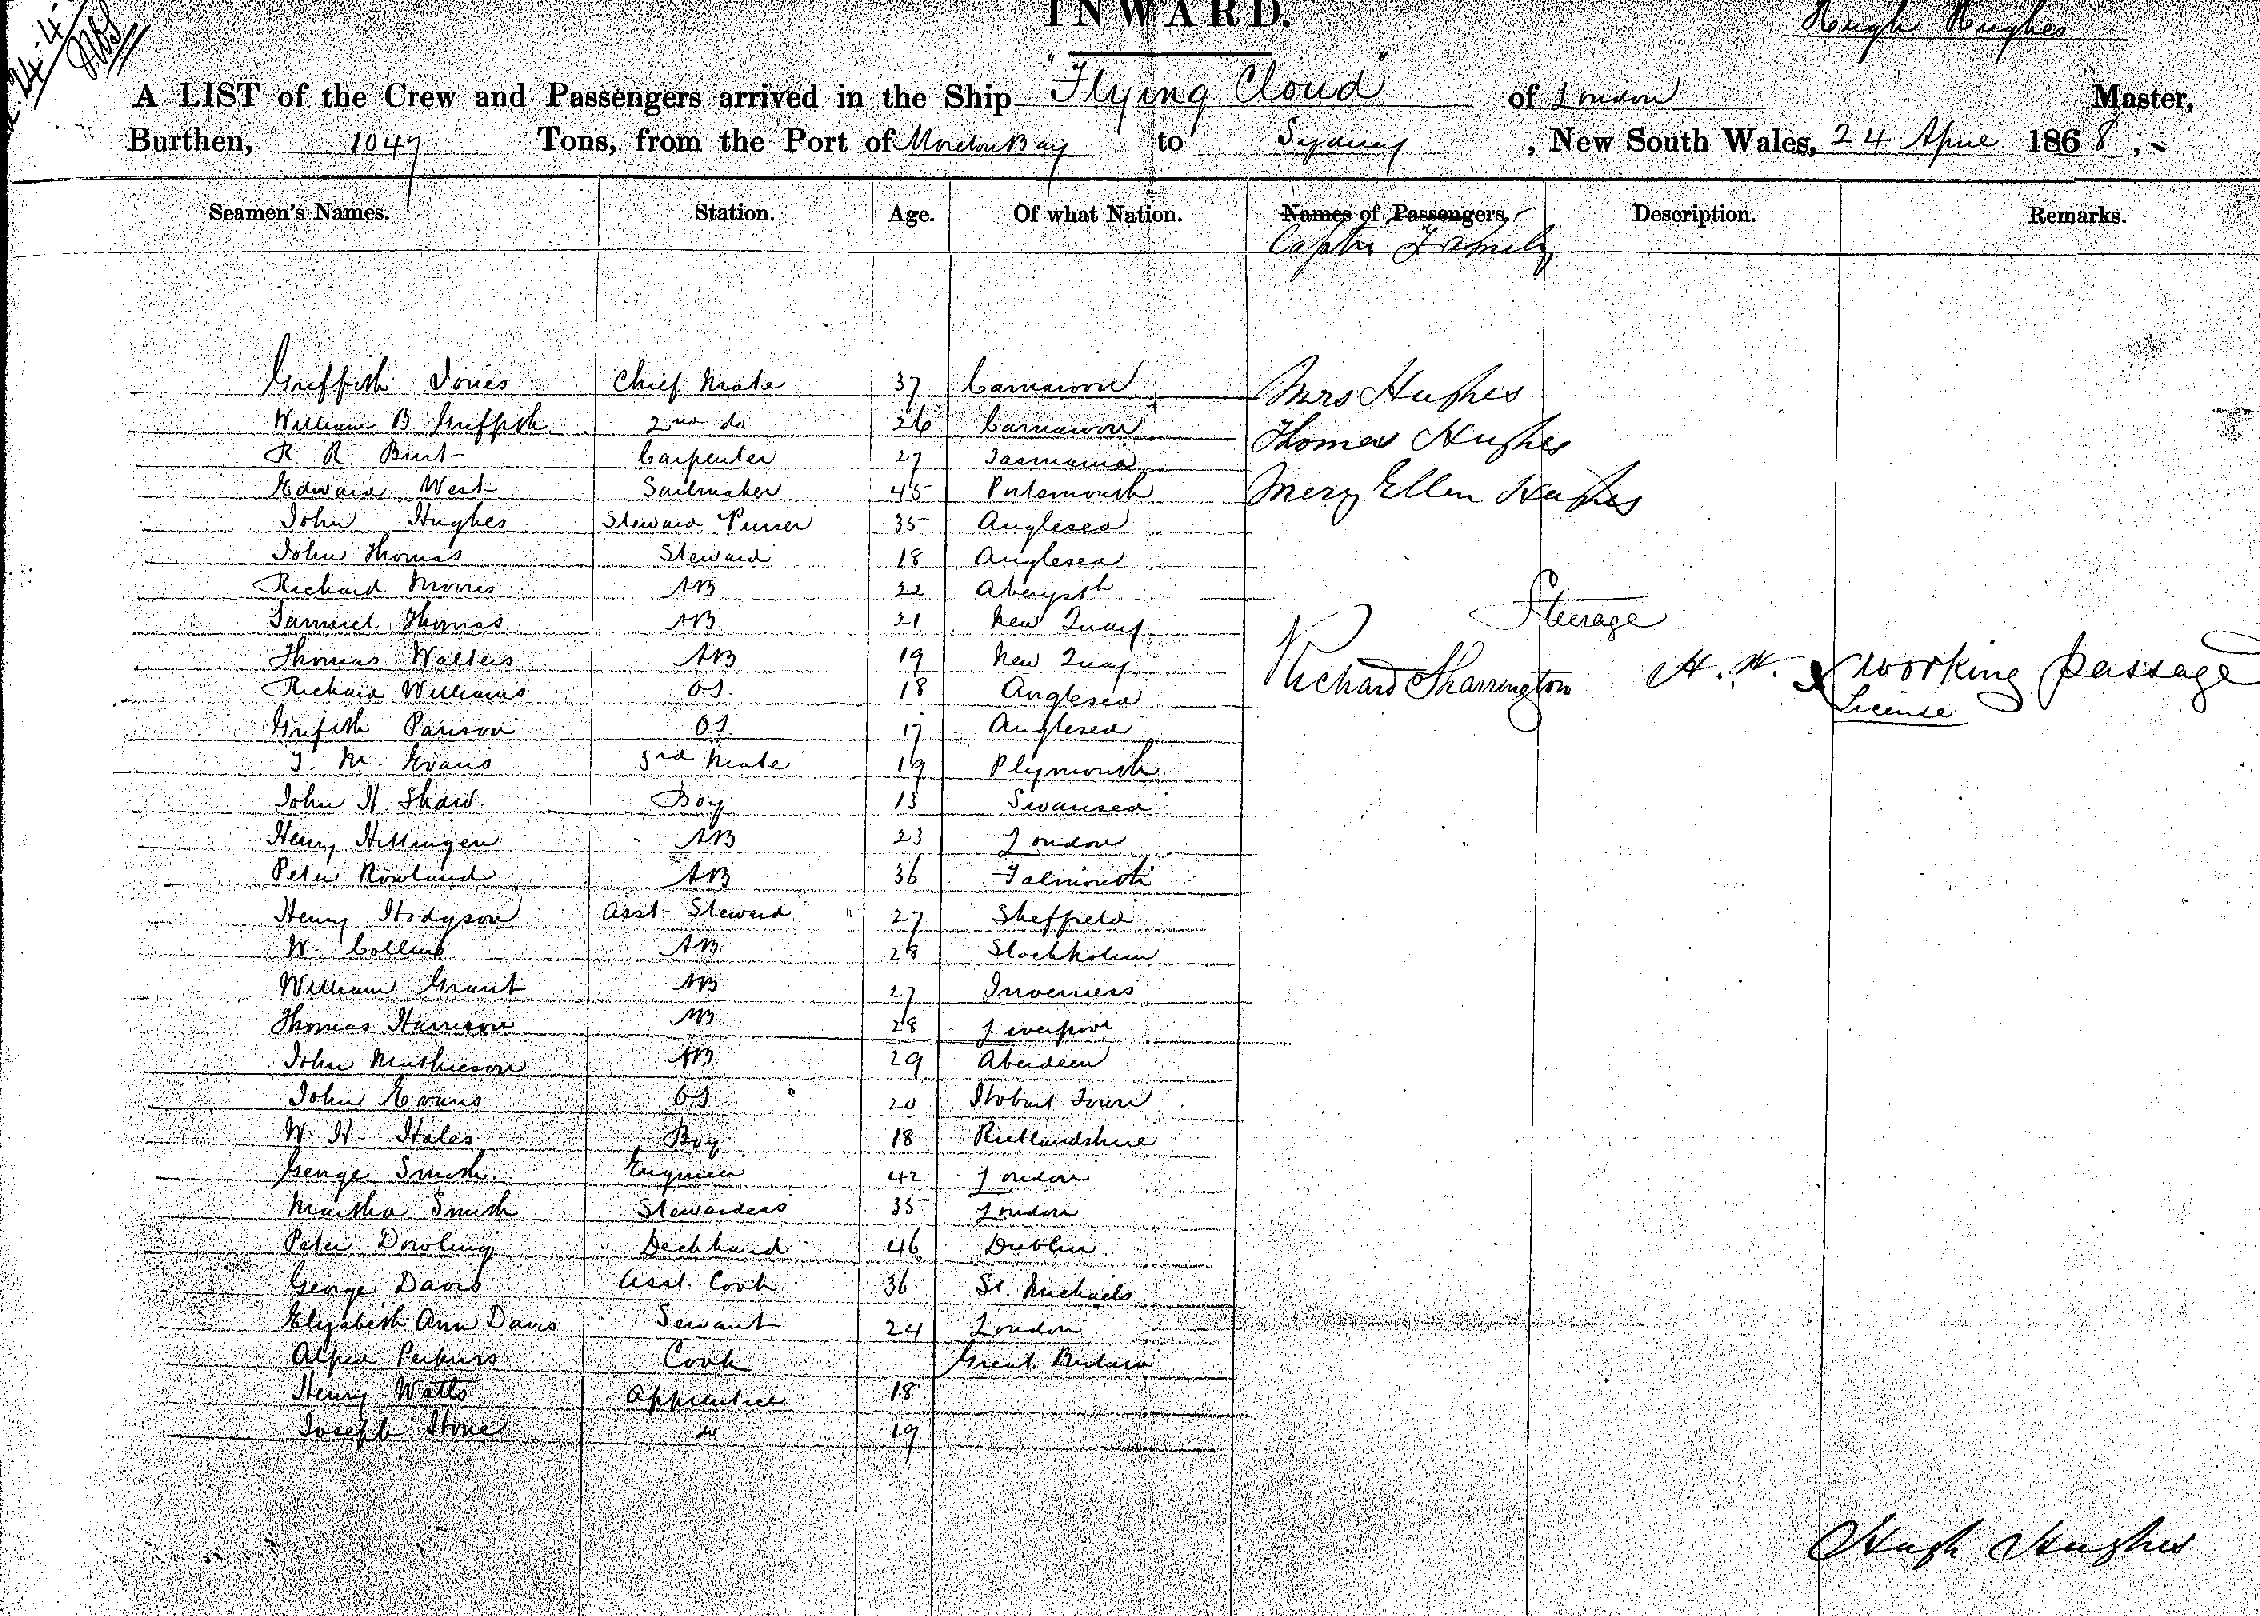 INWARD.
Hugh Hughes
A LIST of the Crew and Passengers arrived in the Ship "Flying Cloud" of London Master,
Burthen, 1047 Tons, from the Port of Moreton Bay to Sydney, New South Wales, 24 April 1868.
Seamen's Names. Station. Age. Of what Nation. Names of Passengers. Description. Remarks.
Captn Family
Griffith Jones Chief Mate 37 Carnarvon Mrs Hughes
William B Griffith 2nd do 26 Carnarvon Thomas Hughes
R R Birt Carpenter 27 Tasmania
Edward West Sailmaker 45 Portsmouth Mery Ellen Hughes
John Hughes Steward Purser 35 Anglesea
John Thomas Steward 18 Anglesea
Richard Morris AB 22 Aberysth
Steerage
Samuel Thomas AB 21 New Quay
Thomas Walters AB 19 New Quay
Richard Sharrington A.W. Working passage
Richard Williams OS. 18 Anglesea
License
Griffith Parison OS. 17 Anglesea
T. M. Evans 3rd Mate 19 Plymouth
John H Shaw Boy 15 Swansea
Henry Hillingen AB 23 London
Peter Rowland AB 36 Falmouth
Henry Hodgson Asst Steward 27 Sheffield
W. Collins AB 28 Stockholm
William Grant AB 27 Inverness
Thomas Harrison AB 28 Liverpool
John Mathieson AB 29 Aberdeen
John Evans OS 20 Hobart Town
W. H. Hales Boy 18 Rutlandshire
George Smith Engineer 42 London
Martha Smith Stewardess 35 London
Peter Dowling Deckhand 46 Dublin
George Davis Asst. Cook 36 St. Michaels
Elizabeth Ann Davis Servant 24 London
Alfred Perkins Cook Great Britain
Henry Watts Apprentice 18
Joseph Stone do 19
Hugh Hughes